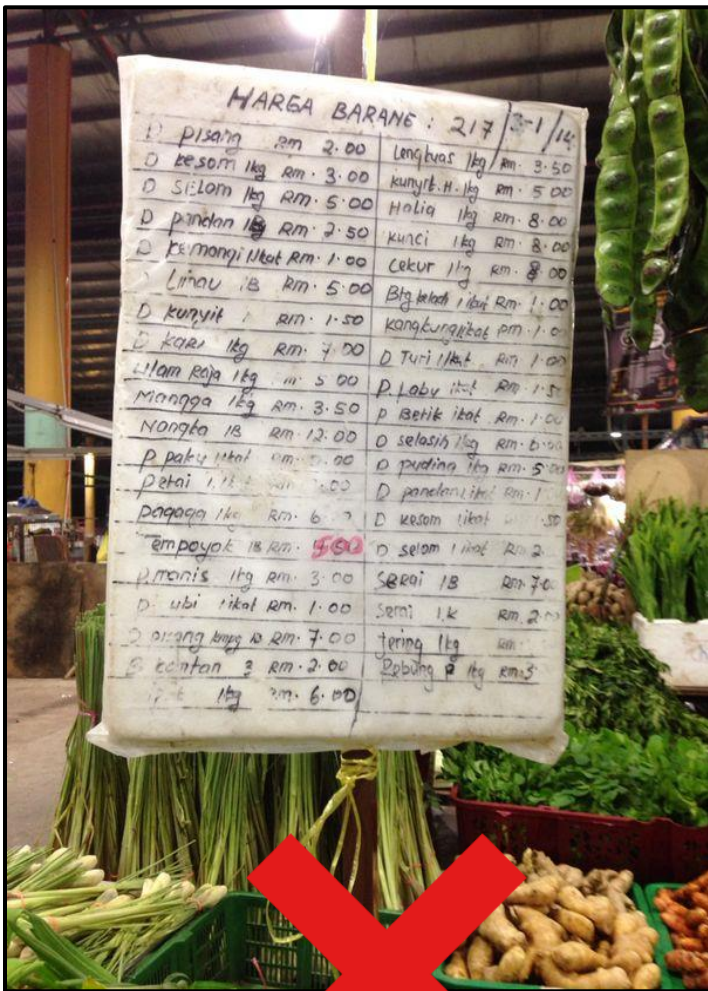 HARGA BARANG : 217 3-1/14
D pisang RM 2.00
D kesom 1kg RM. 3.00
D SELOM 1kg RM. 5.00
D pandan 1kg RM. 2.50
D kemangi 1ikat RM. 1.00
Limau 1B RM. 5.00
D kunyit RM. 1.50
D KARI 1kg RM. 7.00
Ulam Raja 1kg 5.00
Mangga 1kg RM. 3.50
Nangka 1B RM. 12.00
P. paku 1ikat RM. .00
Petai .00
pagaga 1kg RM. 6.
Tempoyak 1B RM.
P. manis 1kg RM. 3.00
D. ubi 1ikat RM. 1.00
D pisang kmpg 1B RM. 7.00
B kantan 3 RM. 2.00
1kg RM. 6.00
Lengkuas 1kg RM. 3.50
kunyit. H. 1kg RM. 5.00
Halia 1kg RM. 8.00
kunci 1kg RM. 8.00
Cekur 1kg RM. 8.00
Btg keladi 1ikat RM. 1.00
kangkung 1ikat RM. 1.0
D Turi 1ikat RM 1.00
P. Labu 1ikat RM. 1.5
P Betik ikat RM. 1.00
D selasih 1kg RM.
D pudina 1kg RM. 5.00
D pandan 1ikat RM. 1
D kesom 1ikat .50
D selom 1ikat RM 2.
SERAI 1B RM. 7.0
Serai 1.K RM. 2.00
Jering 1kg RM
Rebung 1kg RM. 5